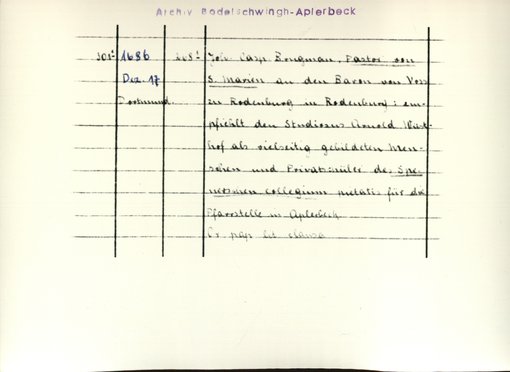 Archiv Bodelschwingh-Aplerbeck
1686 Joh. Casp. Brugman, Pastor von
Dez. 17 S. Marien an den Baron von Voss
Dortmund zu Rodenburg in Rodenburg: em-
pfiehlt den Studiosus Arnold
hof als vielseitig gebildeten Men-
schen und Privatschüler des Spe-
nerschen collegium pietatis für die
Pfarrstelle in Aplerbeck
Or. pap. Lit. clausa